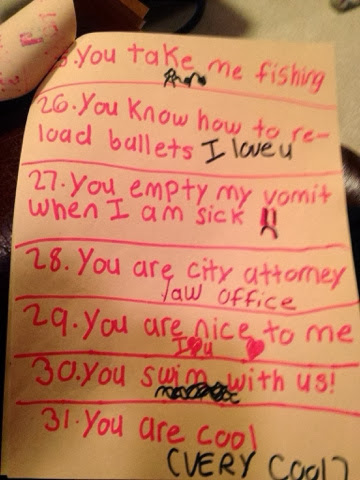 5. You take me fishing
26. You Know how to re-
load bullets I love u
27. You empty my vomit
when I am sick !!
28. You are city attorney
law office
29. You are nice to me
I ♥ u ♥
30. You swim with us!
31. You are cool
(VERY COOL)